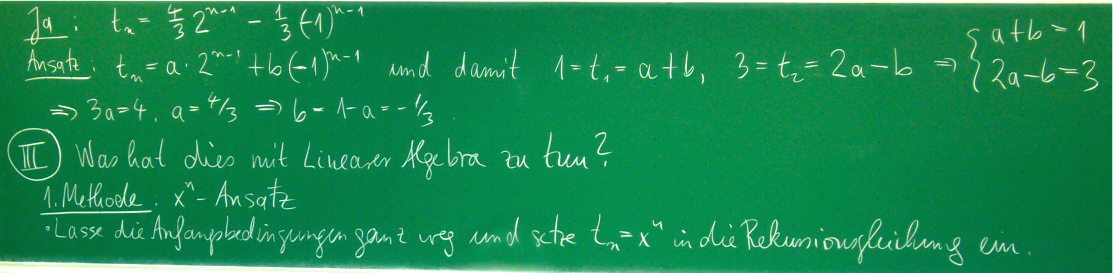 Ja: tₙ = 4/3 2ⁿ⁻¹ - 1/3 (-1)ⁿ⁻¹
Ansatz: tₙ = a · 2ⁿ⁻¹ + b(-1)ⁿ⁻¹ und damit 1 = t₁ = a+b, 3 = t₂ = 2a-b ⇒ { a+b = 1
2a-b = 3
⇒ 3a=4, a = 4/3 ⇒ b = 1-a = -1/3.
III Was hat dies mit Linearer Algebra zu tun?
1. Methode: xⁿ-Ansatz
• Lasse die Anfangsbedingungen ganz weg und setze tₙ = xⁿ in die Rekursionsgleichung ein.